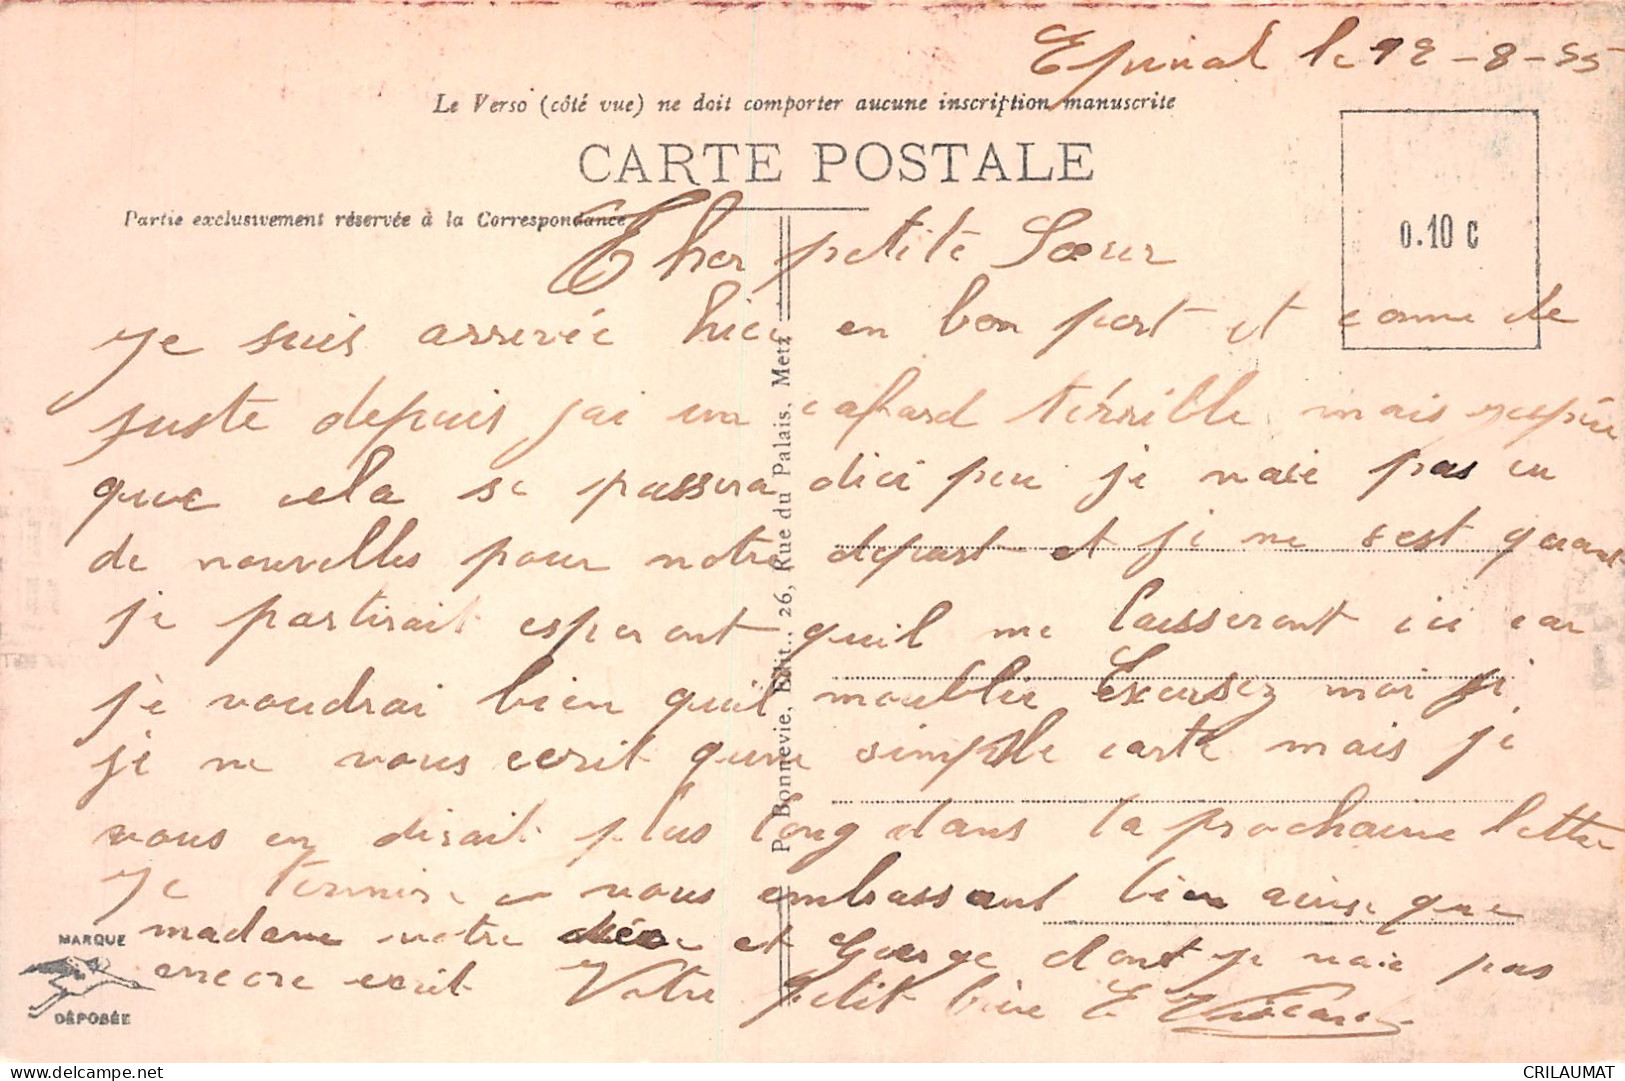 Epinal le 12-8-35
Le Verso (côté vue) ne doit comporter aucune inscription manuscrite
CARTE POSTALE
Partie exclusivement réservée à la Correspondance
0.10 C
Cher petite Sœur
Je suis arrevée hier en bon port et comme de
juste depuis jai un cafard térrible mais jespére
que cela se passera dici peu je naie pas eu
de nouvelles pour notre depart et je ne sest quant
je partirait esperont quil me laisseront ici car
je voudrai bien quil moublie Excusez moi si
je ne vous ecrit qune simple carte mais je
vous en dirait plus long dans la prochaine lettre
Je termine en vous embrassant bien ainsi que
madame votre et George dont je naie pas
encore ecrit Votre petit frére E.
P. Bonnevie, Edit., 26, Rue du Palais, Metz
MARQUE
DÉPOSÉE
delcampe.net
CRILAUMAT